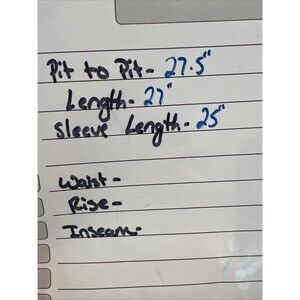 Pit to Pit- 27.5"
Length- 27"
Sleeve Length- 25"
Waist-
Rise-
Inseam-